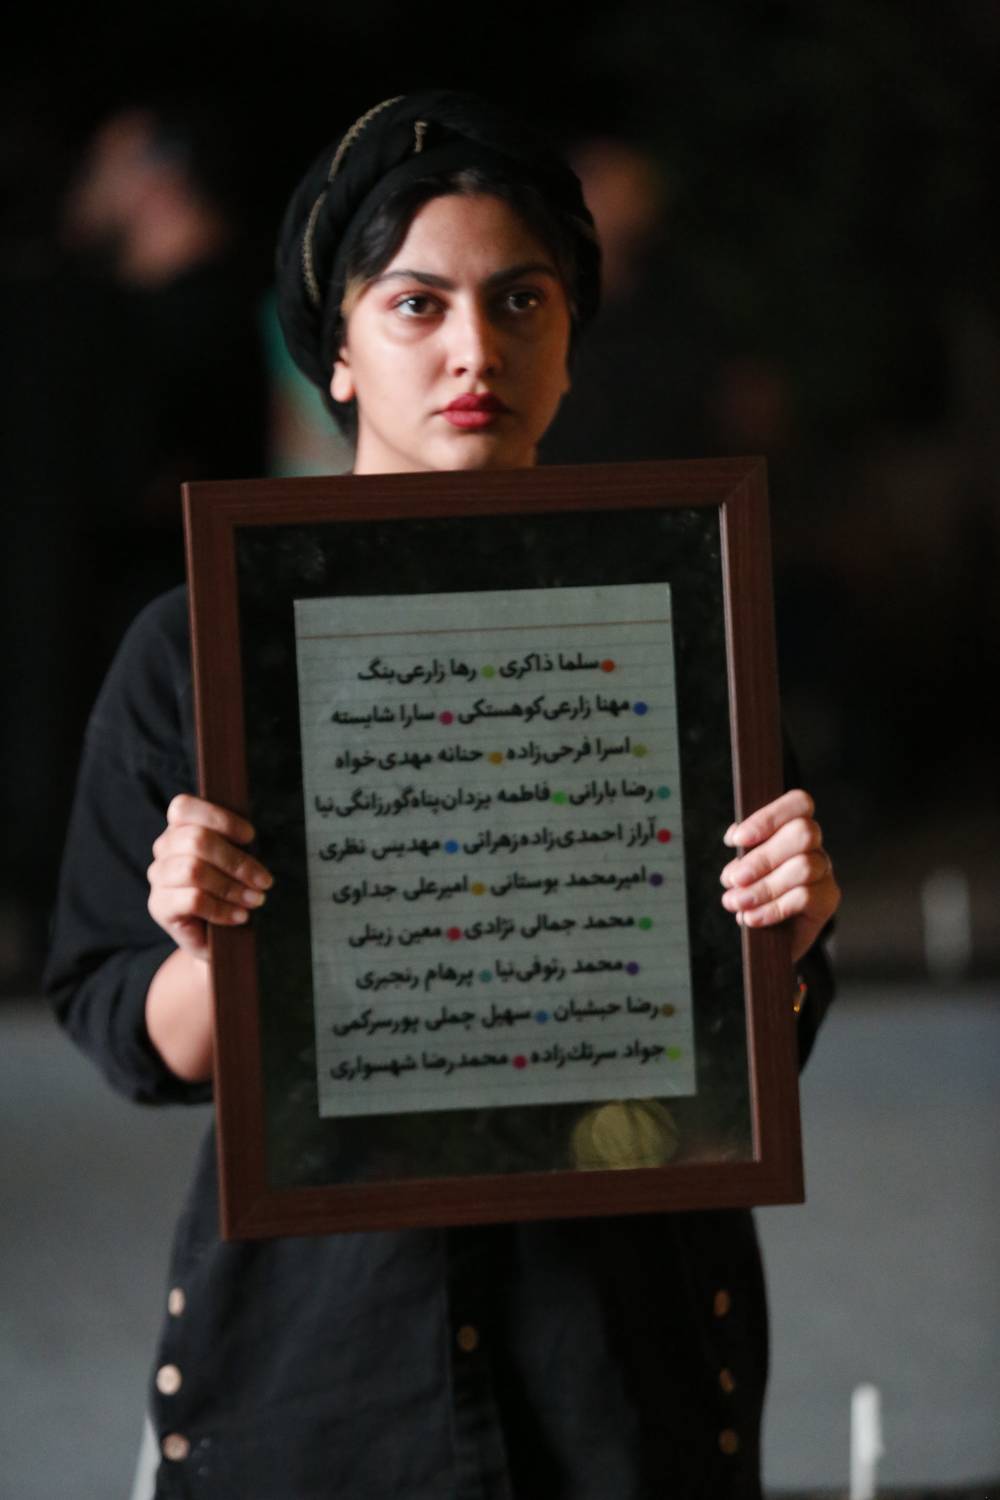 سلما ذاکری رها زارعی‌بنگ
مهنا زارعی‌کوهستکی سارا شایسته
اسرا فرحی‌زاده حنانه مهدی‌خواه
رضا بارانی فاطمه یزدان‌پناه‌گورزانگی‌نیا
آراز احمدی‌زاده‌زهرانی مهدیس نظری
امیرمحمد بوستانی امیرعلی جداوی
محمد جمالی نژادی معین زینلی
محمد رئوفی‌نیا پرهام رنجبری
رضا حبشیان سهیل چملی پورسرکمی
جواد سرتك‌زاده محمدرضا شهسواری